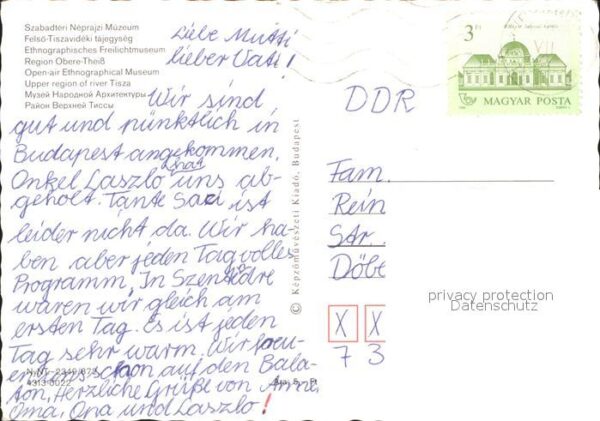 Szabadtéri Néprajzi Múzeum
Felső-Tiszavidéki tájegység
Ethnographisches Freilichtmuseum
Region Obere-Theiß
Open-air Ethnographical Museum
Upper region of river Tisza
Музей Народной Архитектуры
Район Верхней Тиссы
Liebe Mutti
lieber Vati!
Wir sind
gut und pünktlich in
Budapest angekommen.
Onkel Laszlo hat uns ab-
geholt. Tante Sari ist
leider nicht da. Wir ha-
ben aber jeden Tag volles
Programm. In Szentendre
waren wir gleich am
ersten Tag. Es ist jeden
Tag sehr warm. Wir freu-
en uns schon auf den Bala-
ton. Herzliche Grüße von Anne,
Oma, Opa und Laszlo!
4313 0022
© Képzőművészeti Kiadó, Budapest
3 Ft
MAGYAR POSTA
DDR
Fam.
Rein
Str.
Döbe
X X
7 3
privacy protection
Datenschutz